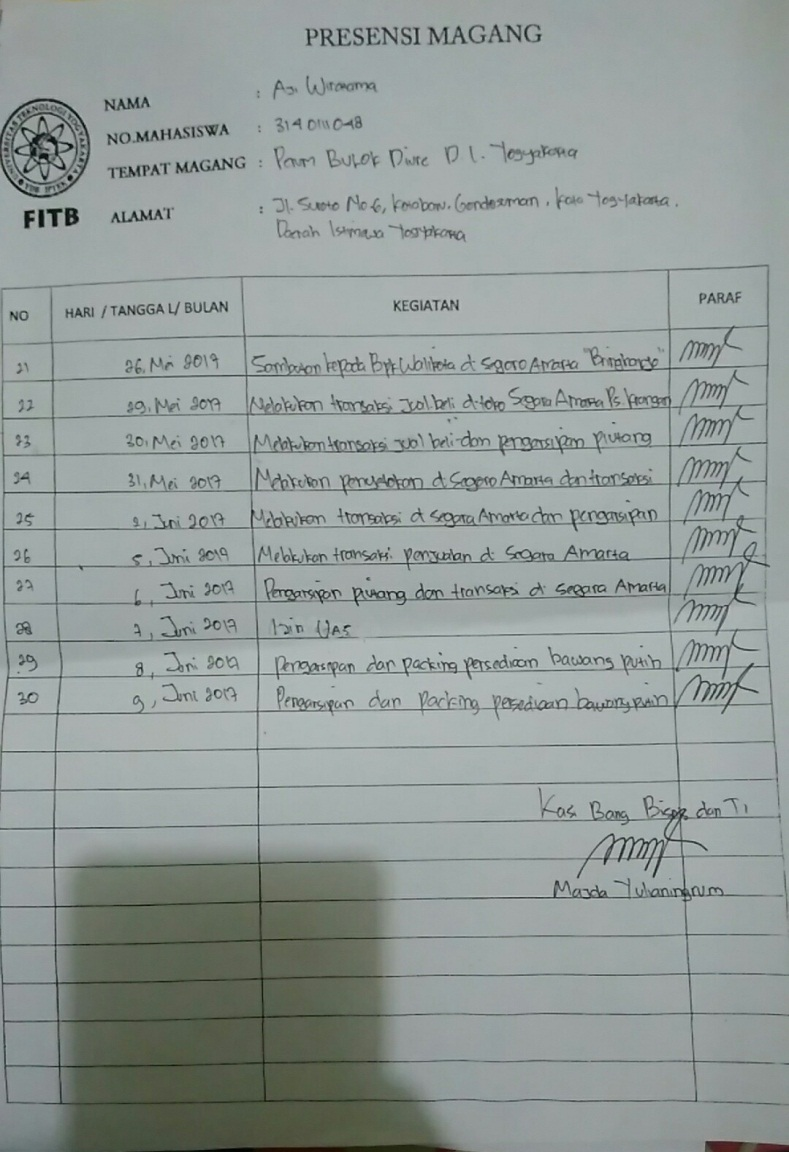 PRESENSI MAGANG
UNIVERSITAS TEKNOLOGI YOGYAKARTA
FITB
NAMA : Aji Wiratama
NO.MAHASISWA : 314011048
TEMPAT MAGANG : Perum BULOK Divre D I. Yogyakarta
ALAMAT : Jl. Suroto No 6, Kotabaru. Gondokusuman, Kota Yogyakarta.
Daerah Istimewa Yogyakarta
NO HARI / TANGGA L/ BULAN KEGIATAN PARAF
21 26, Mei 2017 Sambutan kepada Bpk Walikota di Segoro Amarta "Bringharjo"
22 29, Mei 2017 Melakukan transaksi jual beli di toko Segara Amarta Ps. Kranggan
23 30, Mei 2017 Melakukan transaksi jual beli dan pengarsipan piutang
24 31, Mei 2017 Melakukan penyetokan di Segoro Amarta dan transaksi
25 2, Juni 2017 Melakukan transaksi di Segara Amarta dan pengarsipan
26 5, Juni 2017 Melakukan transaksi penjualan di Segara Amarta
27 6, Juni 2017 Pengarsipan piutang dan transaksi di segara Amarta
28 7, Juni 2017 Izin UAS
29 8, Juni 2017 Pengarsipan dan packing persediaan bawang putih
30 9, Juni 2017 Pengarsipan dan packing persediaan bawang putih
Kasi Bang Bisnis dan TI
Majda Yulianingrum